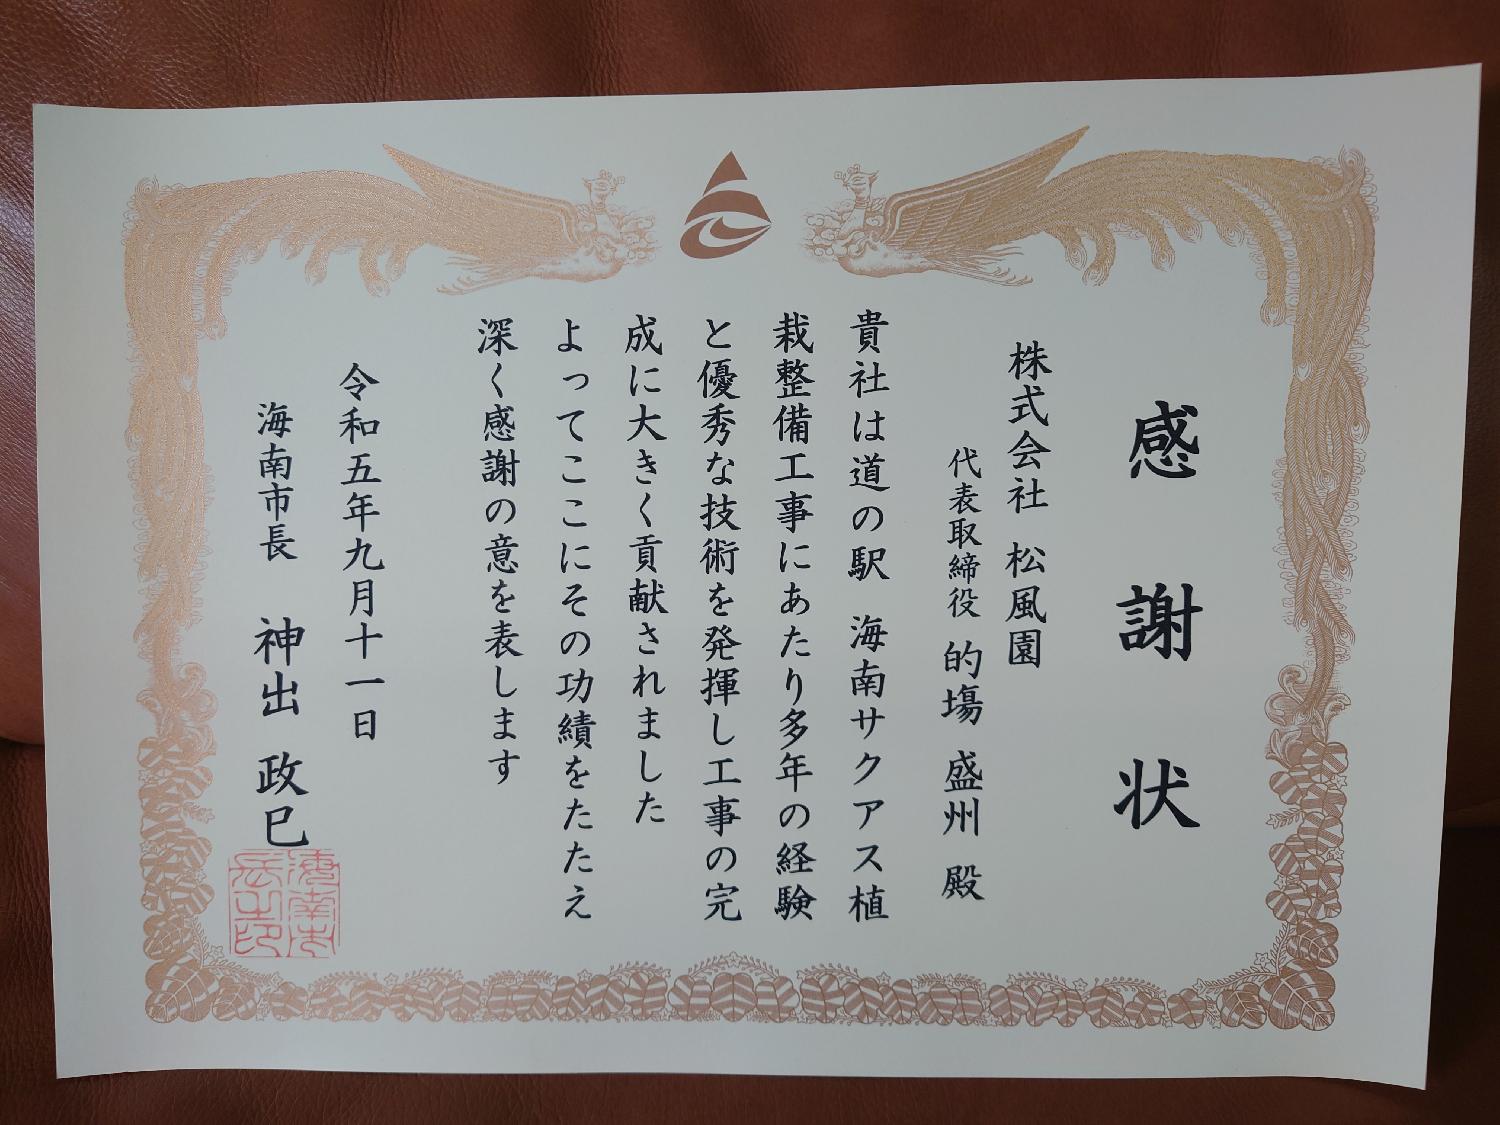 感謝状
株式会社 松風園
代表取締役 的場 盛州 殿
貴社は道の駅 海南サクアス植
栽整備工事にあたり多年の経験
と優秀な技術を発揮し工事の完
成に大きく貢献されました
よってここにその功績をたたえ
深く感謝の意を表します
令和五年九月十一日
海南市長 神出 政巳
海南市
長之印